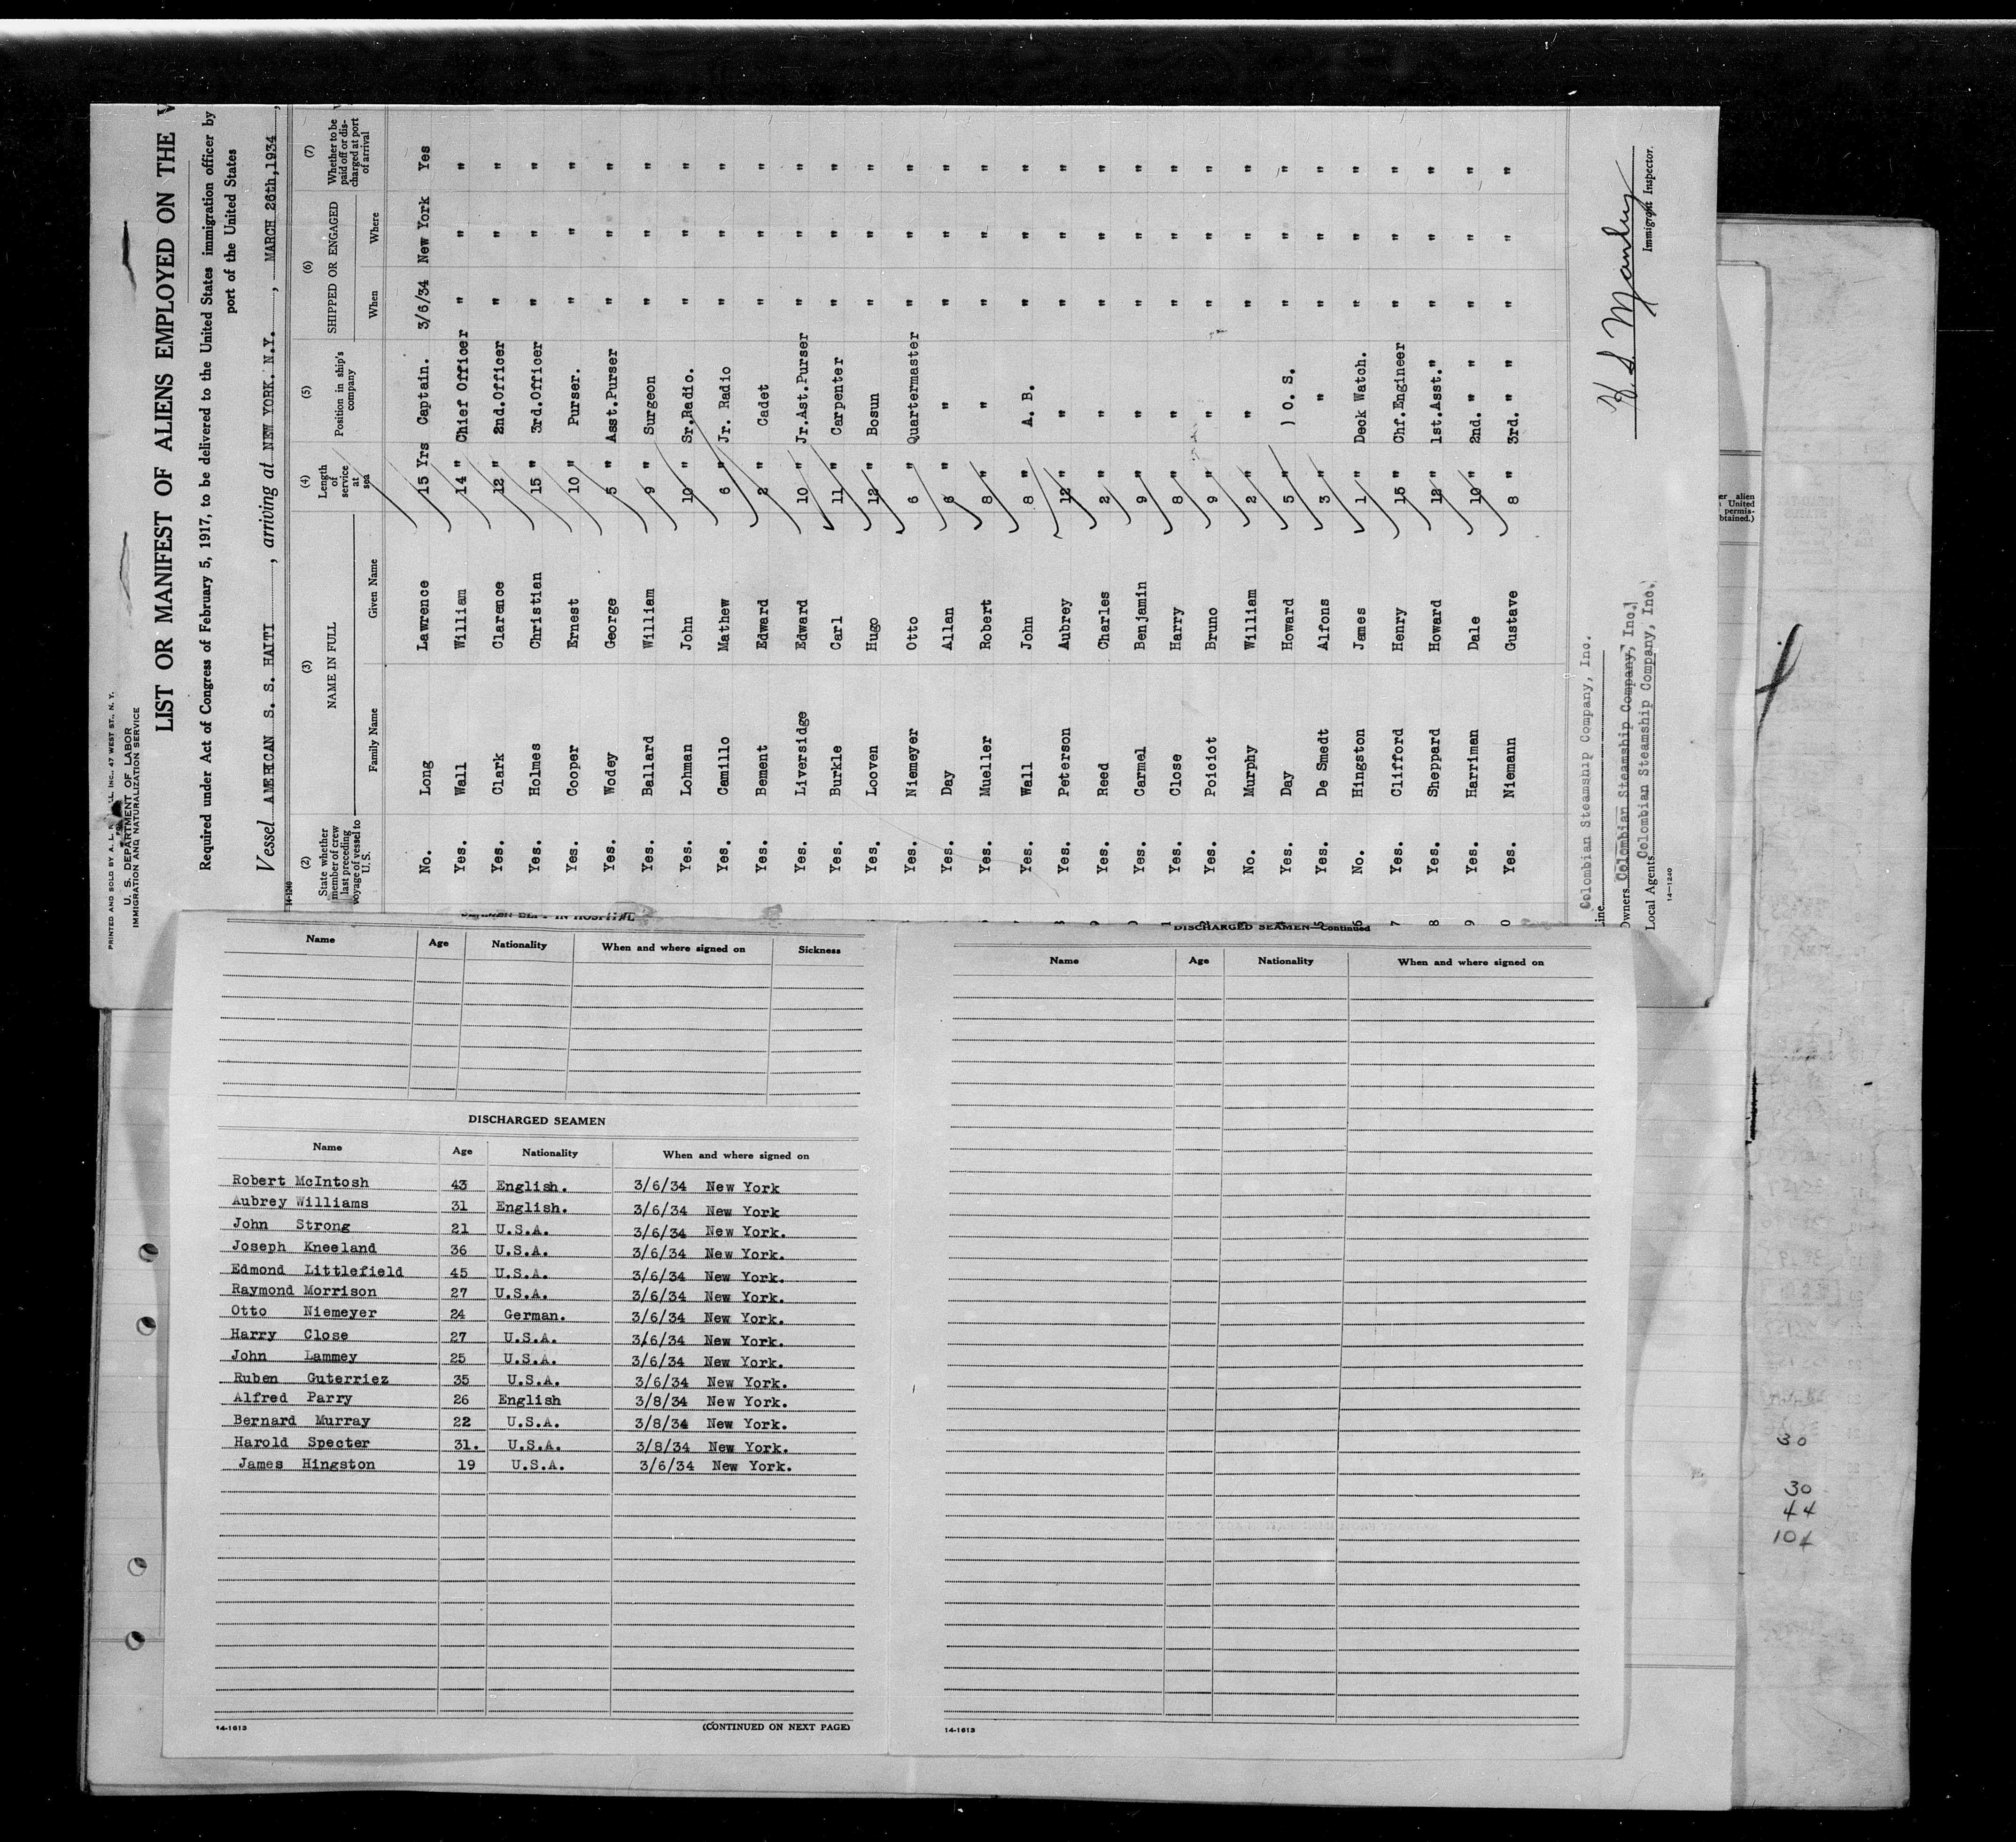 PRINTED AND SOLD BY A. L. INC., 47 WEST ST., N. Y.
U. S. DEPARTMENT OF LABOR
IMMIGRATION AND NATURALIZATION SERVICE
LIST OR MANIFEST OF ALIENS EMPLOYED ON THE
Required under Act of Congress of February 5, 1917, to be delivered to the United States immigration officer by
port of the United States
Vessel AMERICAN S. S. HAITI, arriving at NEW YORK. N.Y., MARCH 26th,1934,
14-1240
(2) (3) (4) (5) (6) (7)
State whether member of crew last preceding voyage of vessel to U.S. NAME IN FULL Length of service at sea Position in ship's company SHIPPED OR ENGAGED Whether to be paid off or discharged at port of arrival
Family Name Given Name When Where
No. Long Lawrence 15 Yrs Captain. 3/6/34 New York Yes
Yes. Wall William 14 " Chief Officer " " "
Yes. Clark Clarence 12 " 2nd.Officer " " "
Yes. Holmes Christian 15 " 3rd.Officer " " "
Yes. Cooper Ernest 10 " Purser. " " "
Yes. Wodey George 5 " Asst.Purser " " "
Yes. Ballard William 9 " Surgeon " " "
Yes. Lohman John 10 " Sr.Radio. " " "
Yes. Camillo Mathew 6 " Jr. Radio " " "
Yes. Bement Edward 2 " Cadet " " "
Yes. Liversidge Edward 10 " Jr.Ast.Purser " " "
Yes. Burkle Carl 11 " Carpenter " " "
Yes. Looven Hugo 12 " Bosun " " "
Yes. Niemeyer Otto 6 " Quartermaster " " "
Yes. Day Allan 6 " " " " "
Yes. Mueller Robert 8 " " " " "
Yes. Wall John 8 " A. B. " " "
Yes. Peterson Aubrey 12 " " " " "
Yes. Reed Charles 2 " " " " "
Yes. Carmel Benjamin 9 " " " " "
Yes. Close Harry 8 " " " " "
Yes. Poiciot Bruno 9 " " " " "
No. Murphy William 2 " " " " "
Yes. Day Howard 5 " ) O. S. " " "
Yes. De Smedt Alfons 3 " " " " "
No. Hingston James 1 " Deck Watch. " " "
Yes. Clifford Henry 15 " Chf.Engineer " " "
Yes. Sheppard Howard 12 " 1st.Asst." " " "
Yes. Harriman Dale 10 " 2nd. " " " " "
Yes. Niemann Gustave 8 " 3rd. " " " " "
Line Colombian Steamship Company, Inc.
Owners Colombian Steamship Company, Inc.
Local Agents Colombian Steamship Company, Inc.
14-1240
H. S. Manley
Immigrant Inspector.
er alien
United
permis-
btained.)
SEAMEN LEFT IN HOSPITAL
Name Age Nationality When and where signed on Sickness
DISCHARGED SEAMEN
Name Age Nationality When and where signed on
Robert McIntosh 43 English. 3/6/34 New York
Aubrey Williams 31 English. 3/6/34 New York
John Strong 21 U.S.A. 3/6/34 New York.
Joseph Kneeland 36 U.S.A. 3/6/34 New York.
Edmond Littlefield 45 U.S.A. 3/6/34 New York.
Raymond Morrison 27 U.S.A. 3/6/34 New York.
Otto Niemeyer 24 German. 3/6/34 New York.
Harry Close 27 U.S.A. 3/6/34 New York.
John Lammey 25 U.S.A. 3/6/34 New York.
Ruben Guterriez 35 U.S.A. 3/6/34 New York.
Alfred Parry 26 English 3/8/34 New York.
Bernard Murray 22 U.S.A. 3/8/34 New York.
Harold Specter 31. U.S.A. 3/8/34 New York.
James Hingston 19 U.S.A. 3/6/34 New York.
14-1613
(CONTINUED ON NEXT PAGE)
DISCHARGED SEAMEN—Continued
Name Age Nationality When and where signed on
14-1613
30
30
44
104